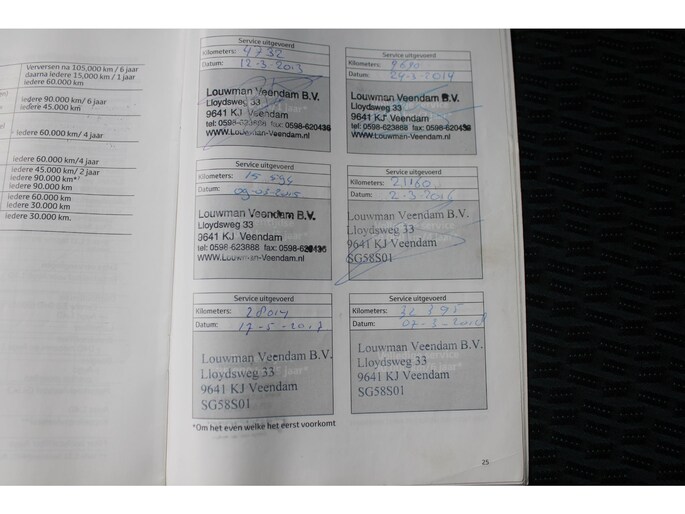 Verversen na 105.000 km / 6 jaar
daarna iedere 15.000 km / 1 jaar
iedere 60.000 km
iedere 90.000 km / 6 jaar
iedere 45.000 km
iedere 60.000 km/ 4 jaar
iedere 60.000 km/4 jaar
iedere 45.000 km/ 2 jaar
iedere 90.000 km*²
iedere 90.000 km
iedere 60.000 km
iedere 30.000 km
iedere 30.000 km.
Service uitgevoerd
Kilometers: 4732
Datum: 12-3-2013
Louwman Veendam B.V.
Lloydsweg 33
9641 KJ Veendam
tel: 0598-623888 fax: 0598-620436
WWW.Louwman-Veendam.nl
Service uitgevoerd
Kilometers: 9690
Datum: 24-3-2014
Louwman Veendam B.V.
Lloydsweg 33
9641 KJ Veendam
tel: 0598-623888 fax: 0598-620436
WWW.Louwman-Veendam.nl
Service uitgevoerd
Kilometers: 15 596
Datum: 09-03-2015
Louwman Veendam B.V.
Lloydsweg 33
9641 KJ Veendam
tel: 0598-623888 fax: 0598-620436
WWW.Louwman-Veendam.nl
Service uitgevoerd
Kilometers: 21160
Datum: 2-3-2016
Louwman Veendam B.V.
Lloydsweg 33
9641 KJ Veendam
SG58S01
Service uitgevoerd
Kilometers: 28014
Datum: 17-5-2017
Louwman Veendam B.V.
Lloydsweg 33
9641 KJ Veendam
SG58S01
Service uitgevoerd
Kilometers: 32 395
Datum: 07-3-2018
Louwman Veendam B.V.
Lloydsweg 33
9641 KJ Veendam
SG58S01
*Om het even welke het eerst voorkomt
25